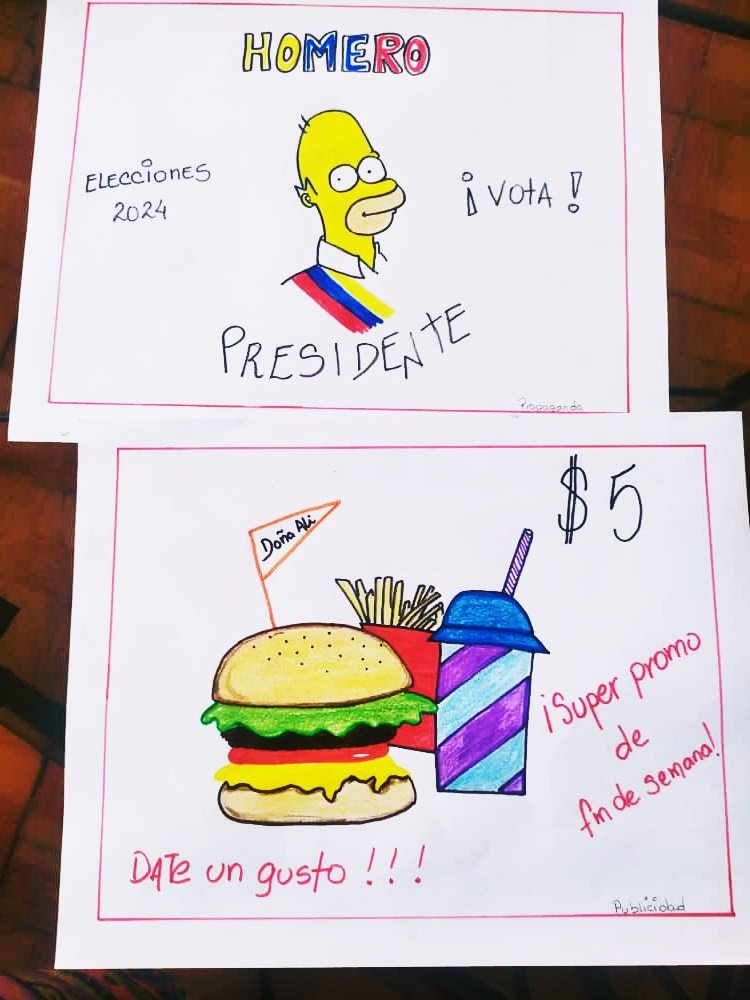 HOMERO
ELECCIONES
2024
¡VOTA!
PRESIDENTE
Propaganda
$5
Doña Ali
¡Super promo
de
fin de semana!
DATE un gusto!!!
Publicidad